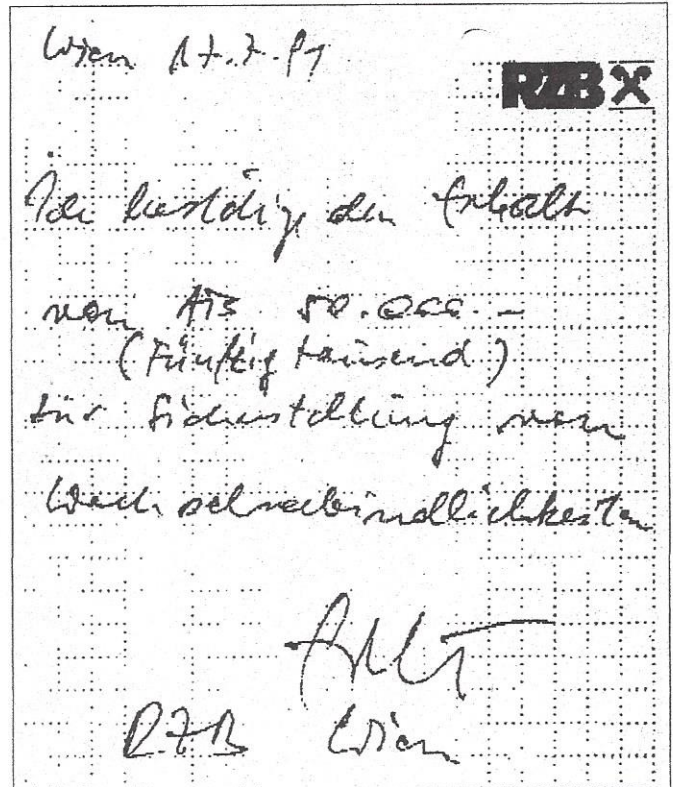 Wien 17.7.91
RZB
Ich bestätige den Erhalt
von ATS 50.000.-
(Fünfzig tausend)
für Sicherstellung von
Wechselverbindlichkeiten
RZB Wien